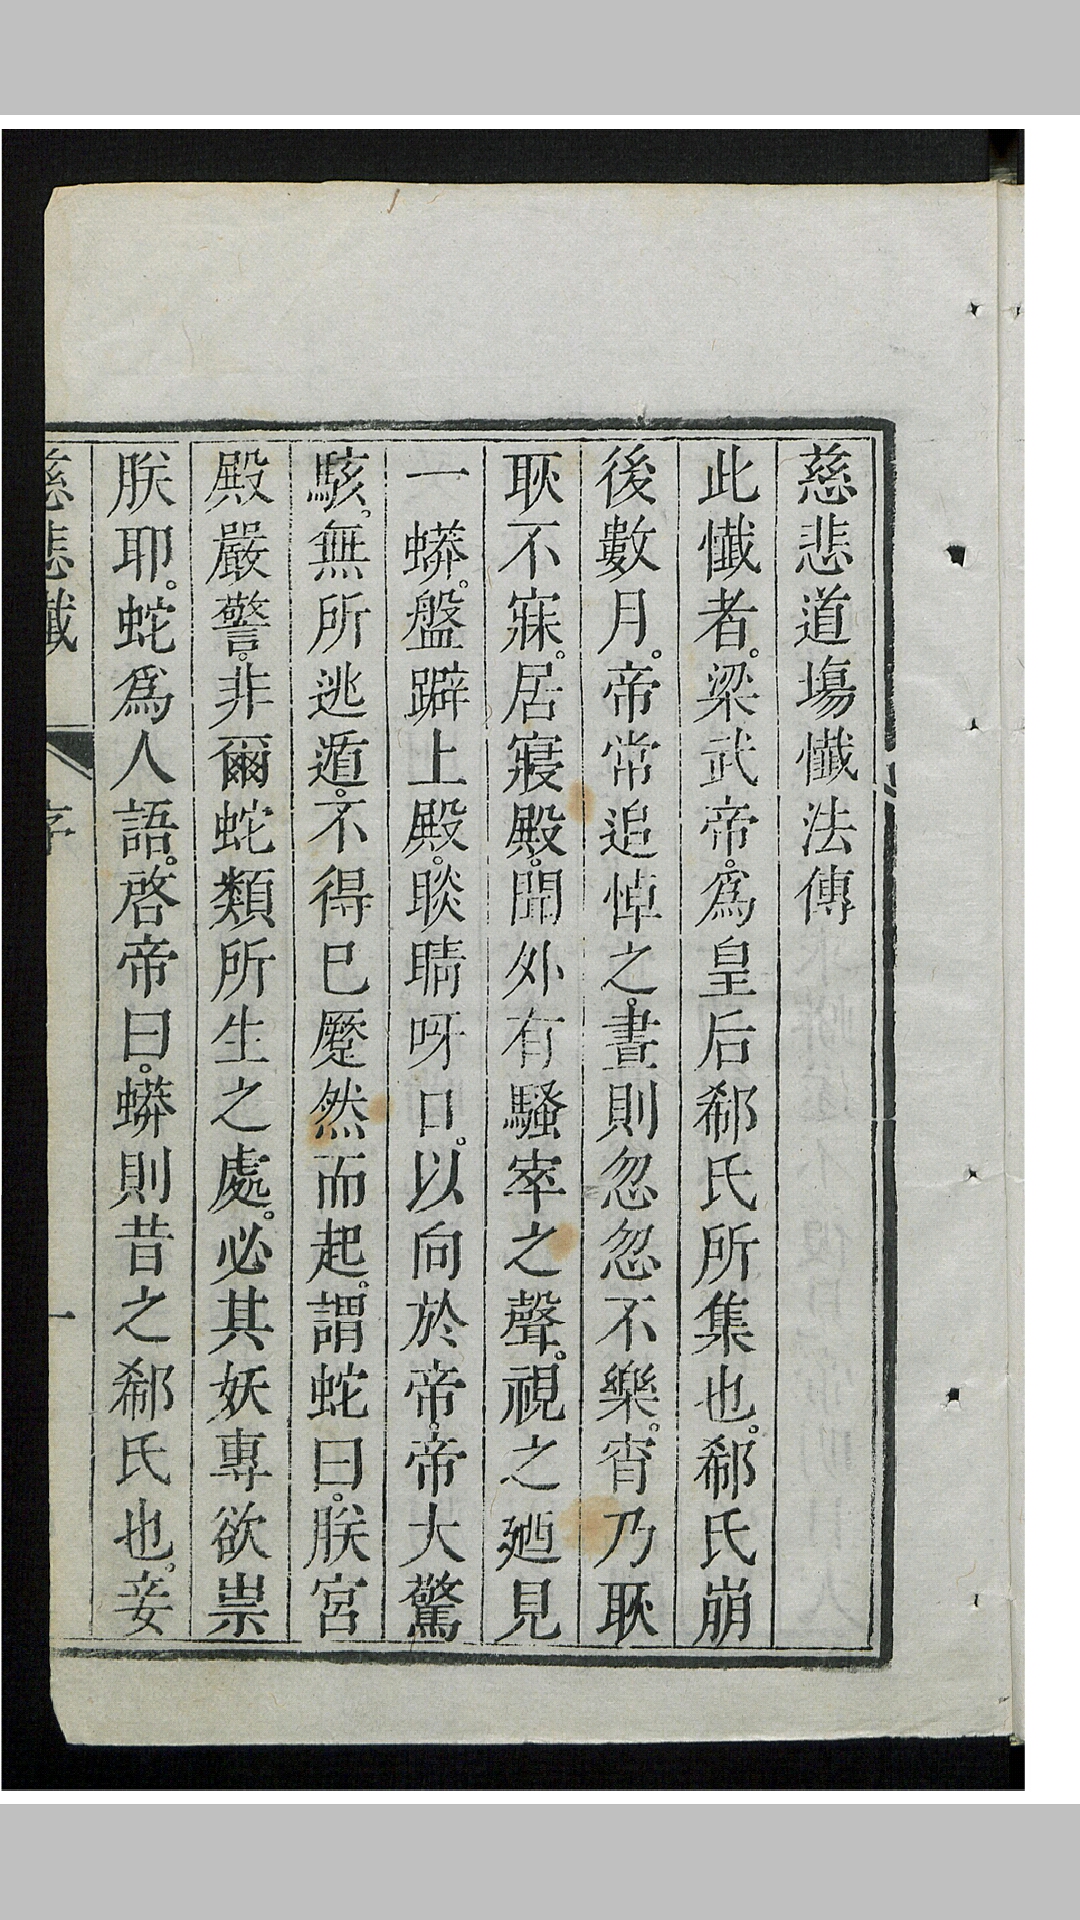 慈悲道場懺法傳
此懺者。梁武帝。為皇后郗氏所集也。郗氏崩
後數月。帝常追悼之。晝則忽忽不樂。宵乃耿
耿不寐。居寢殿。聞外有騷窣之聲。視之廼見
一蟒。盤躃上殿。睒睛呀口。以向於帝。帝大驚
駭。無所逃遁。不得已蹷然而起。謂蛇曰。朕宮
殿嚴警。非爾蛇類所生之處。必其妖專欲祟
朕耶。蛇爲人語。啓帝曰。蟒則昔之郗氏也。妾
慈悲懺 序 一